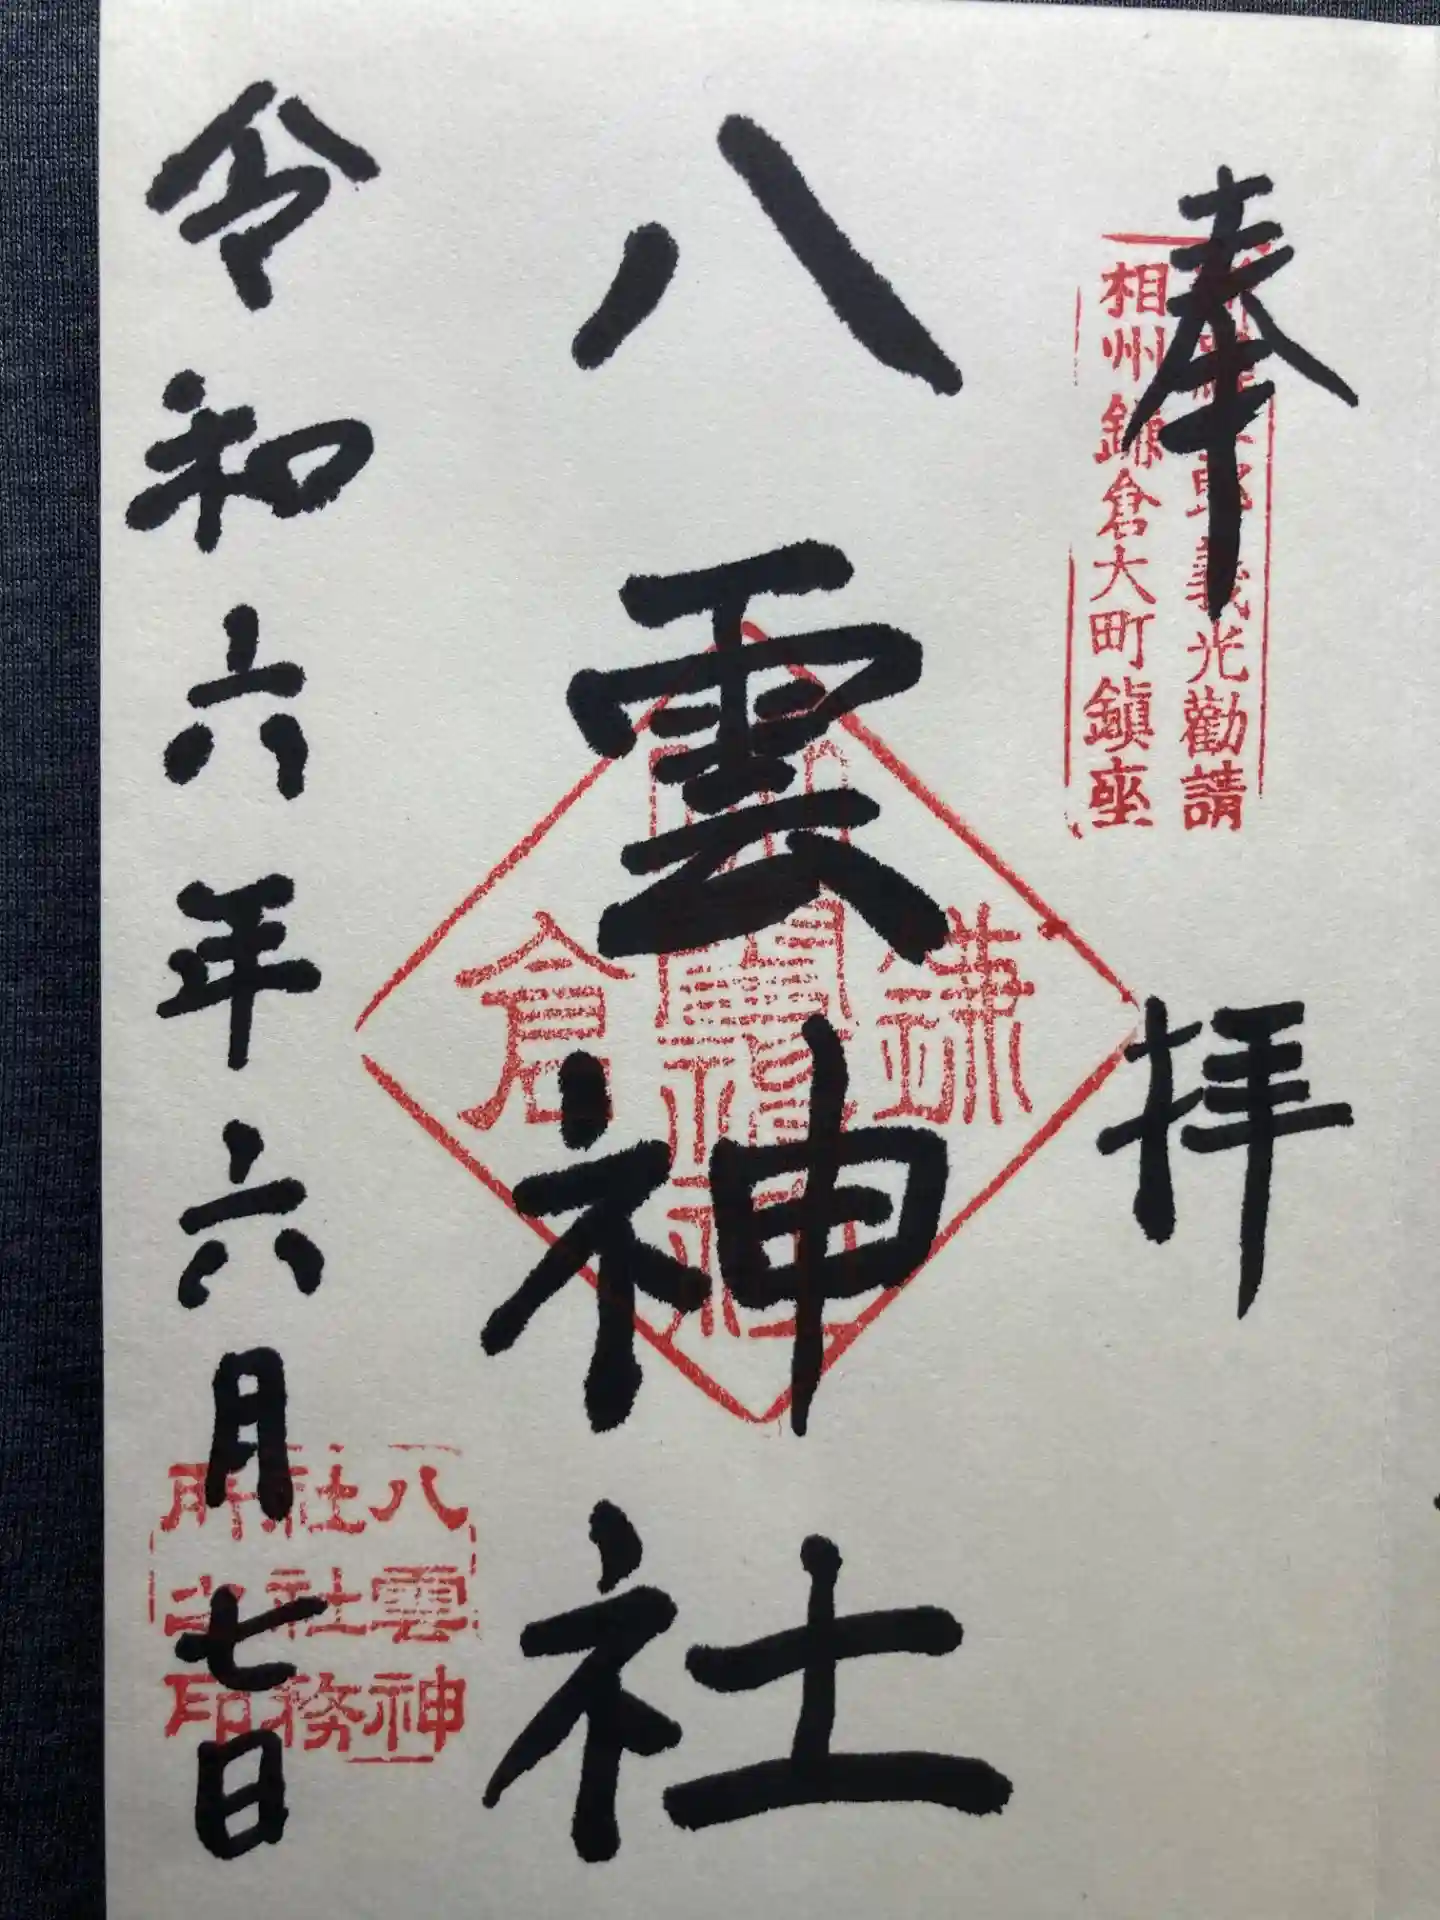 奉拝
新羅三郎義光勸請
相州鎌倉大町鎭座
八雲神社
鎌倉
令和六年六月七日
八雲神
社社務
所之印